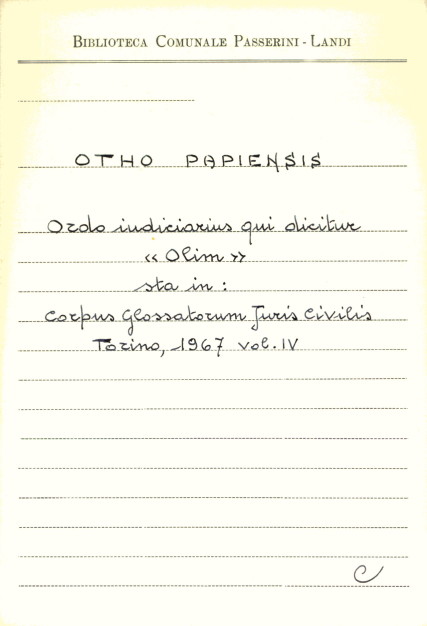 BIBLIOTECA COMUNALE PASSERINI - LANDI
OTHO PAPIENSIS
Ordo iudiciarius qui dicitur
« Olim »
sta in :
Corpus Glossatorum Juris Civilis
Torino, 1967 vol. IV
C